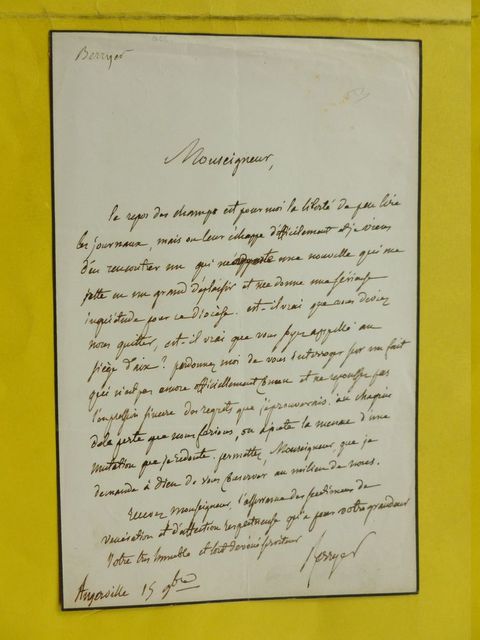 Berryer
Monseigneur,
le repos des champs est pour moi la liberté de peu lire
les journaux, mais on leur échappe difficilement et je viens
d'en rencontrer un qui une nouvelle qui me
jette en un grand déplaisir et me donne une sérieuse
inquiétude pour ce diocèse. est-il vrai que vous deviez
nous quitter, est-il vrai que vous soyez appellé au
siège d'aix? pardonnez moi de vous interroger sur un fait
qui n'est pas encore officiellement connu et ne repoussez pas
l'expression sincere des regrets que j'éprouverais. au chagrin
de la perte que nous ferions, on ajoute la menace d'une
mutation que je redoute. permettez, Monseigneur, que je
demande à Dieu de vous conserver au milieu de nous.
recevez monseigneur, l'assurance des sentimens de
vénération et d'affection respectueuse qu'a pour votre grandeur
Votre très humble et tout dévoué serviteur
Berryer
Angerville 15 9bre